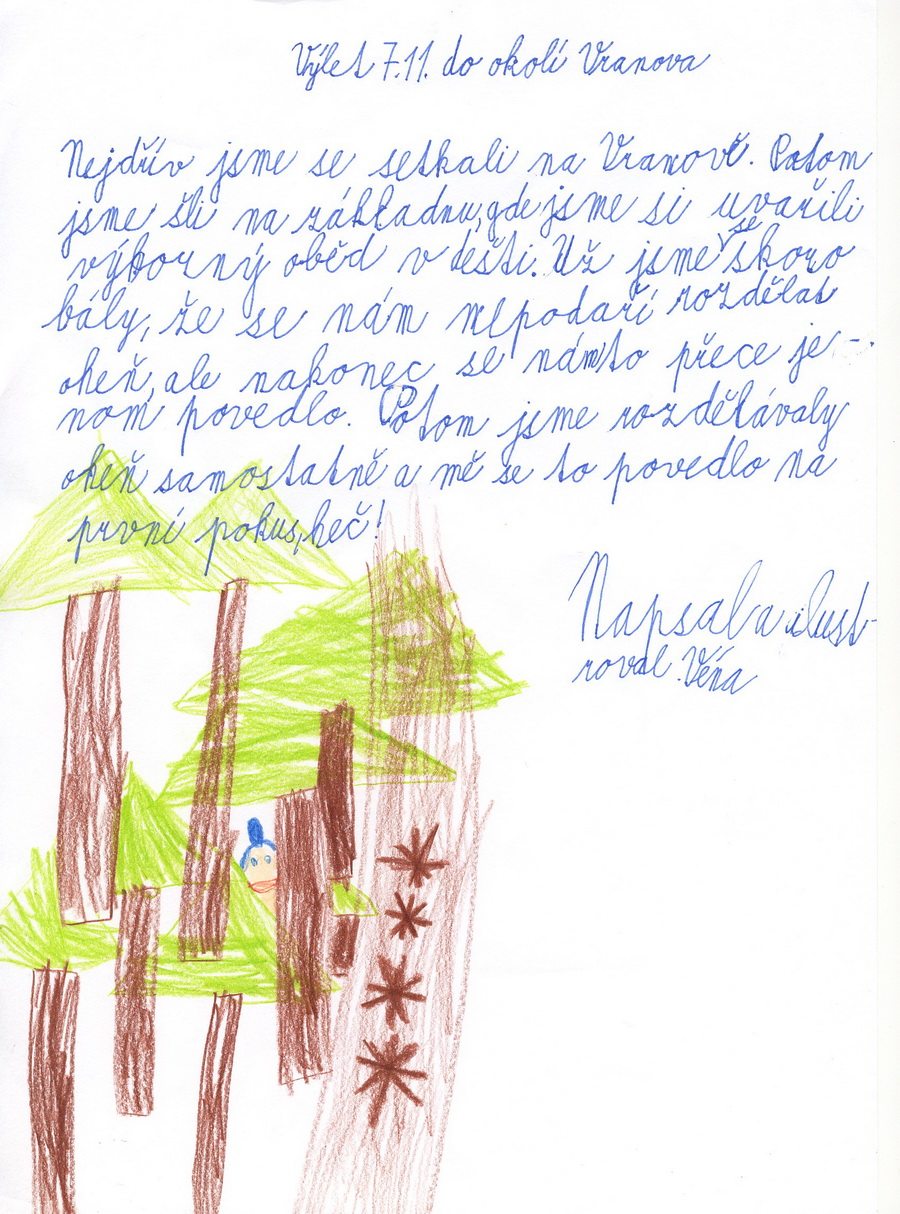 Výlet 7.11. do okolí Vranova
Nejdřív jsme se setkali na Vranově. Potom
jsme šli na základnu, gde jsme si uvařili
výborný oběd v dešti. Už jsme se skoro
bály, že se nám nepodaří rozdělat
oheň, ale nakonec se nám to přece je-
nom povedlo. Potom jsme rozdělávaly
oheň samostatně a mě se to povedlo na
první pokus, heč!
Napsal a ilust-
roval Véna